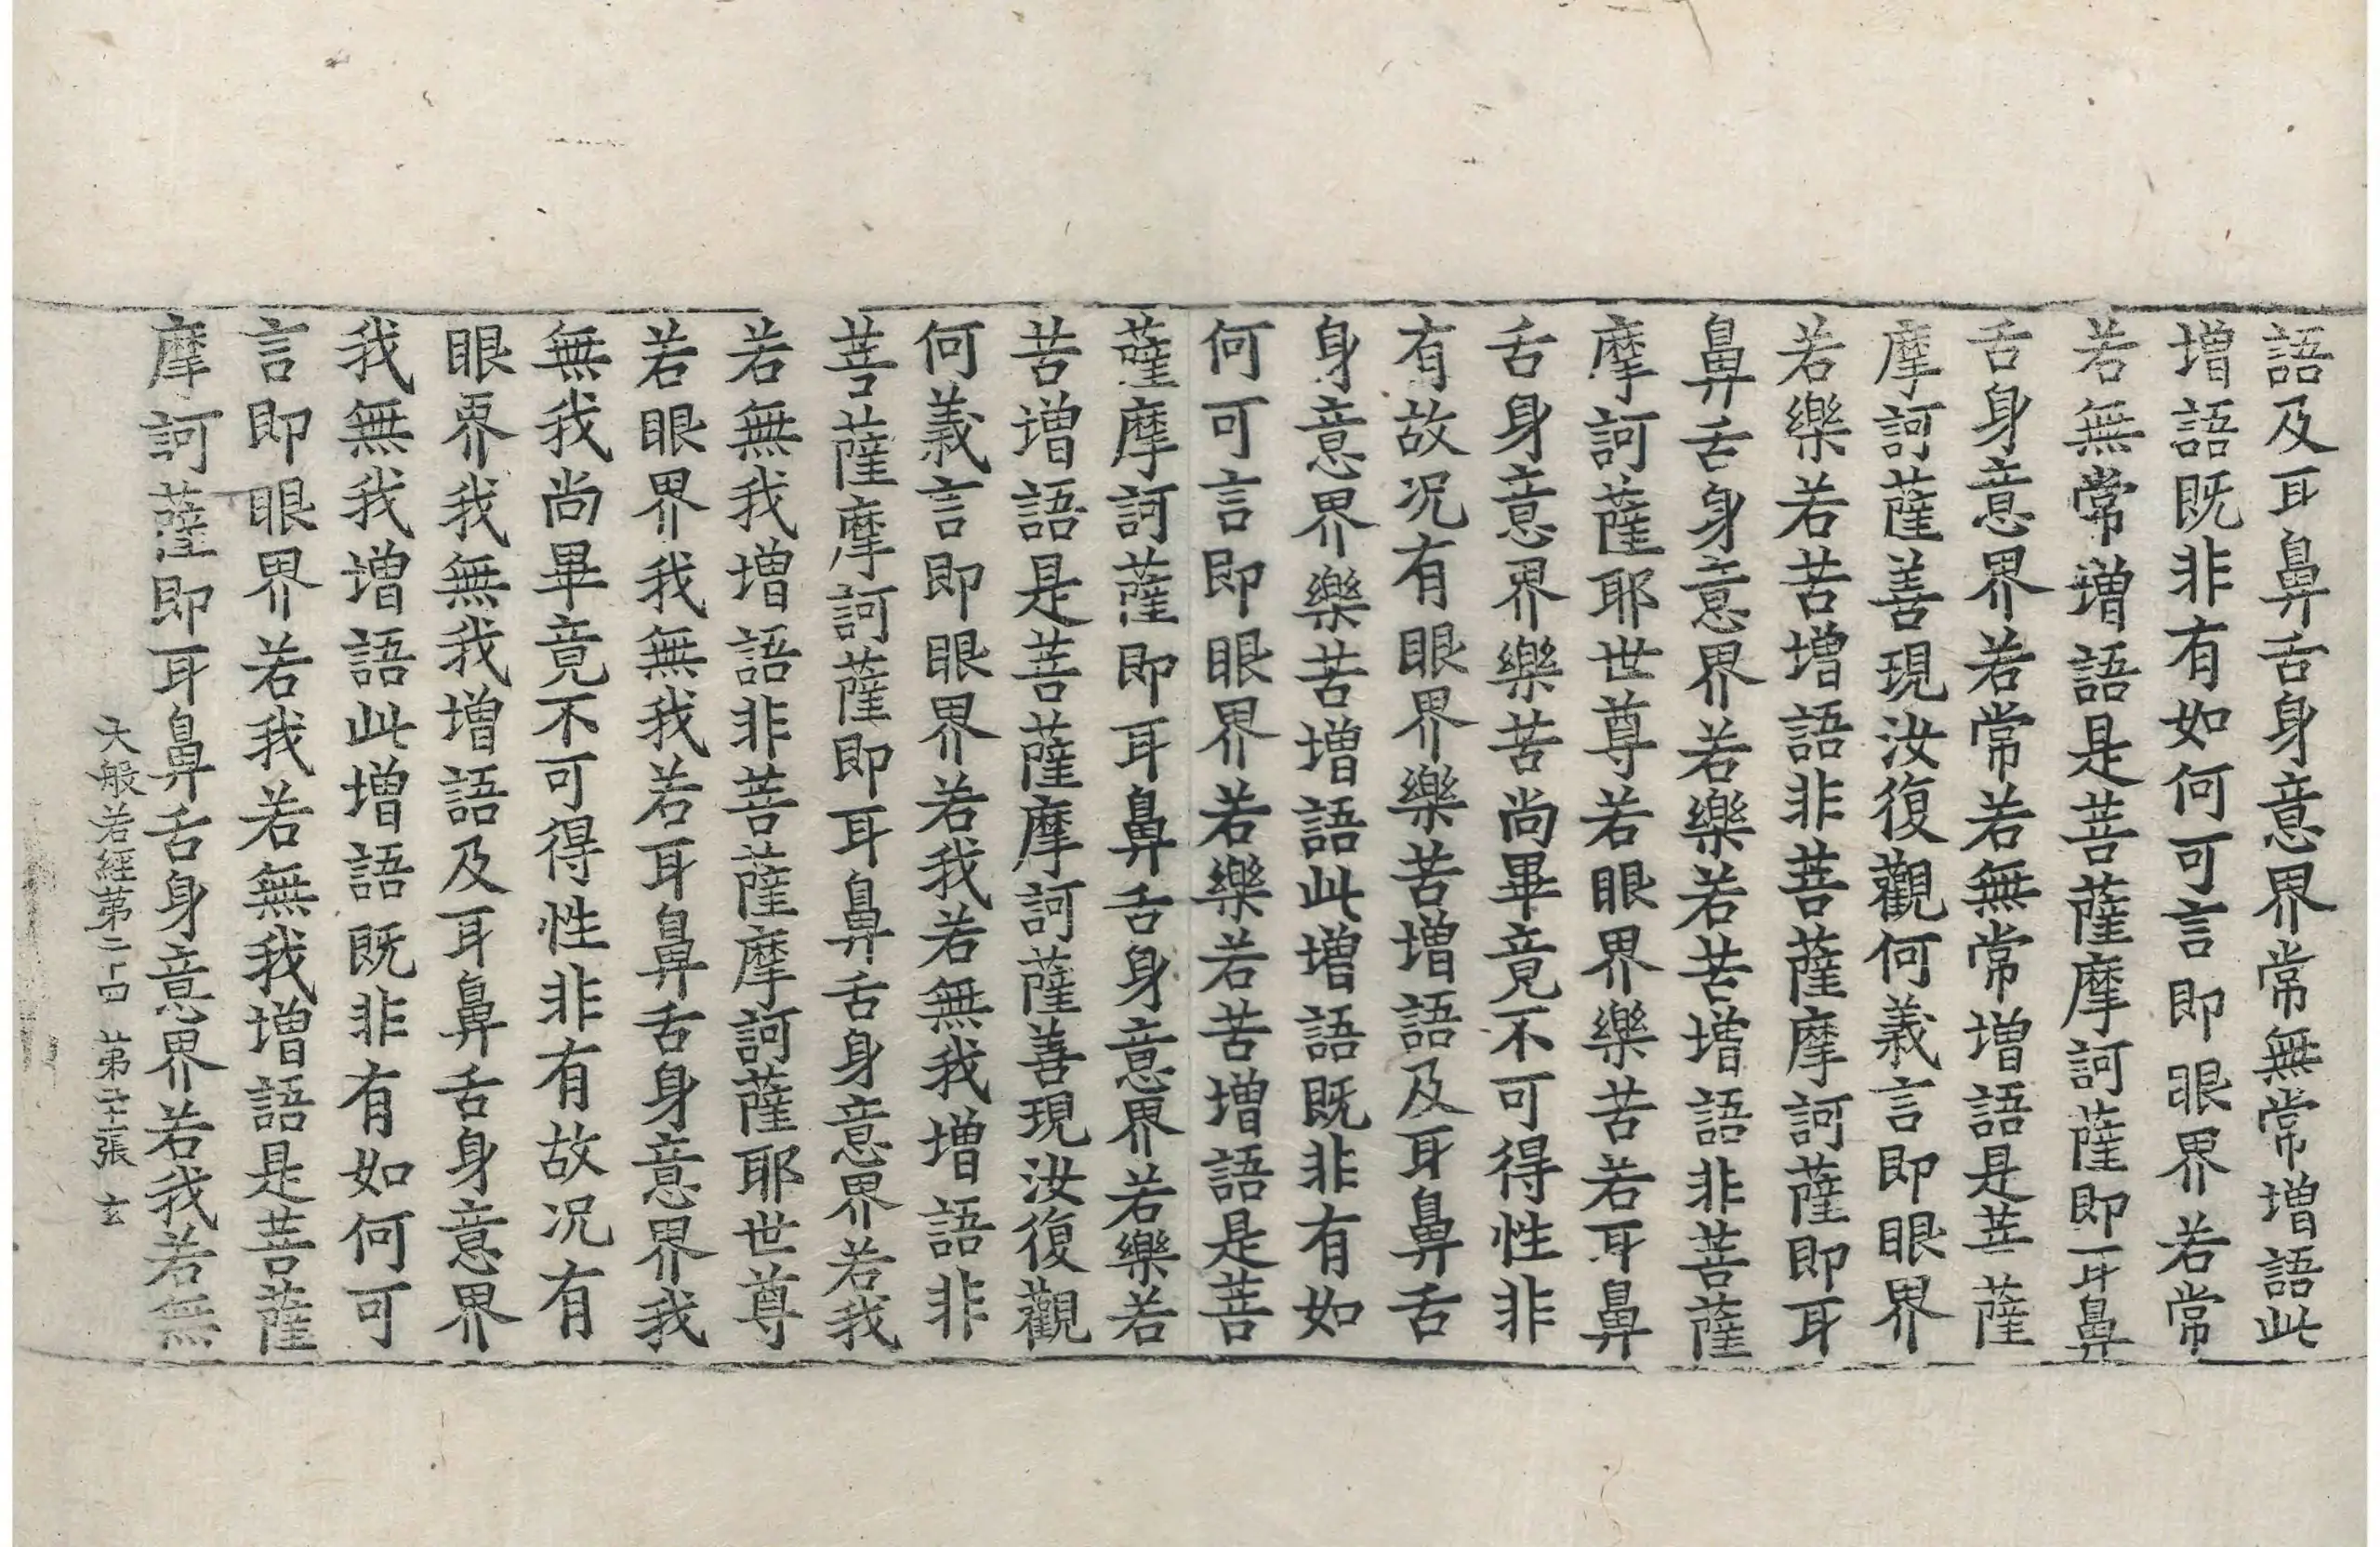 語及耳鼻舌身意界常無常增語此
增語既非有如何可言即眼界若常
若無常增語是菩薩摩訶薩即耳鼻
舌身意界若常若無常增語是菩薩
摩訶薩善現汝復觀何義言即眼界
若樂若苦增語非菩薩摩訶薩即耳
鼻舌身意界若樂若苦增語非菩薩
摩訶薩耶世尊若眼界樂苦若耳鼻
舌身意界樂苦尚畢竟不可得性非
有故况有眼界樂苦增語及耳鼻舌
身意界樂苦增語此增語既非有如
何可言即眼界若樂若苦增語是菩
薩摩訶薩即耳鼻舌身意界若樂若
苦增語是菩薩摩訶薩善現汝復觀
何義言即眼界若我若無我增語非
菩薩摩訶薩即耳鼻舌身意界若我
若無我增語非菩薩摩訶薩耶世尊
若眼界我無我若耳鼻舌身意界我
無我尚畢竟不可得性非有故况有
眼界我無我增語及耳鼻舌身意界
我無我增語此增語既非有如何可
言即眼界若我若無我增語是菩薩
摩訶薩即耳鼻舌身意界若我若無
大般若經第二十四 第二十張 玄